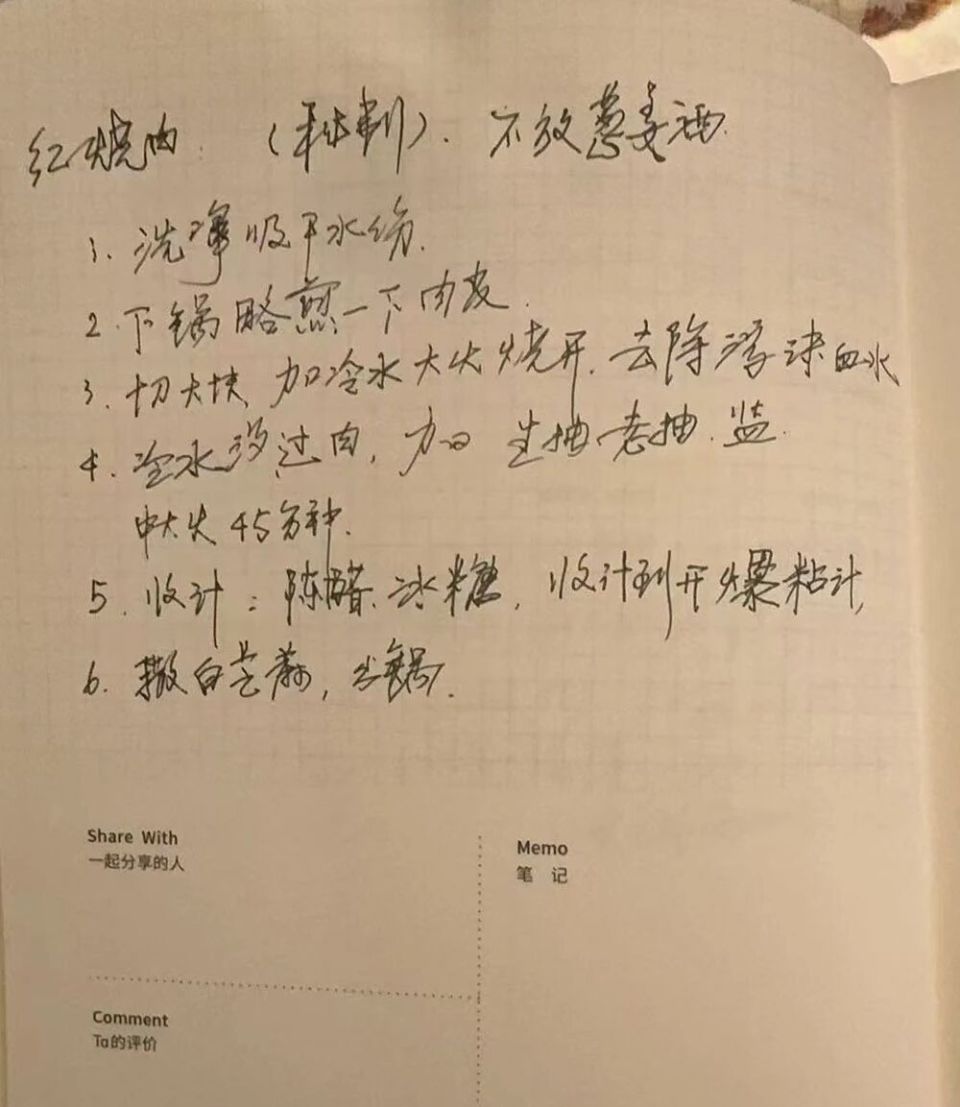 红烧肉 (秘制). 不放葱姜酒.
1. 洗净吸干水份.
2. 下锅略煎一下肉皮.
3. 切大块, 加冷水大火烧开, 去除浮沫血水
4. 冷水没过肉, 加 生抽 老抽. 盐.
中大火 45分种.
5. 收计: 陈醋. 冰糖, 收计到开爆粘计,
6. 撒白芝麻, 出锅.
Share With
一起分享的人
Memo
笔 记
Comment
Ta的评价